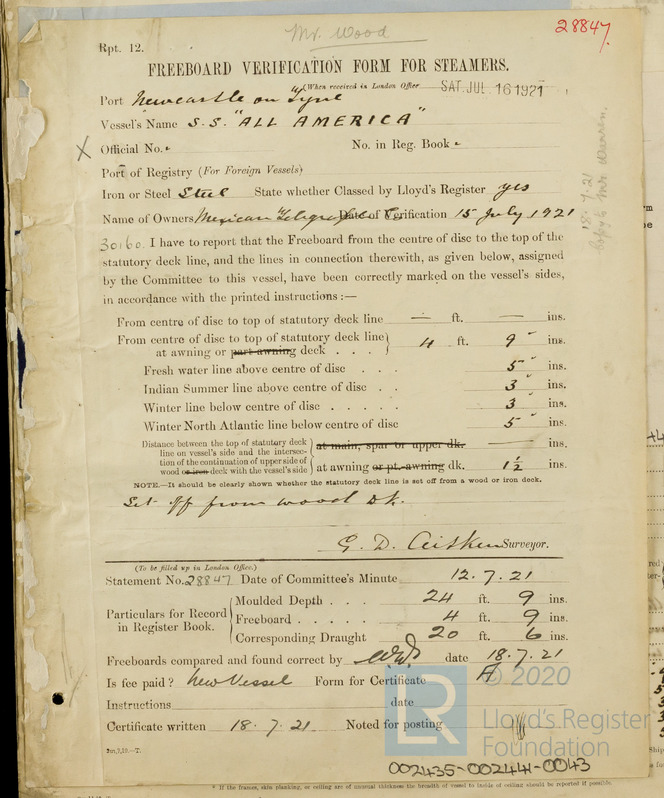 Mr. Wood
28847.
Rpt. 12.
FREEBOARD VERIFICATION FORM FOR STEAMERS.
(When received in London Office SAT. JUL 16 1921
Port Newcastle on Tyne
Vessel's Name S.S. "ALL AMERICA"
X Official No. No. in Reg. Book
Port of Registry (For Foreign Vessels)
Iron or Steel Steel State whether Classed by Lloyd's Register yes
Name of Owners Mexican Telegraph Co Date of Verification 15 July 1921
30160. I have to report that the Freeboard from the centre of disc to the top of the
statutory deck line, and the lines in connection therewith, as given below, assigned
by the Committee to this vessel, have been correctly marked on the vessel's sides,
in accordance with the printed instructions :—
From centre of disc to top of statutory deck line — ft. — ins.
From centre of disc to top of statutory deck line
at awning or part awning deck . . . 4 ft. 9" ins.
Fresh water line above centre of disc . . . 5" ins.
Indian Summer line above centre of disc . . 3" ins.
Winter line below centre of disc . . . . . 3" ins.
Winter North Atlantic line below centre of disc 5" ins.
Distance between the top of statutory deck
line on vessel's side and the intersec-
tion of the continuation of upper side of
wood or iron deck with the vessel's side
at main, spar or upper dk. — ins.
at awning or pt. awning dk. 1½ ins.
NOTE.—It should be clearly shown whether the statutory deck line is set off from a wood or iron deck.
Set off from wood Dk.
G. D. Aitken Surveyor.
(To be filled up in London Office.)
Statement No. 28847 Date of Committee's Minute 12.7.21
Particulars for Record
in Register Book.
Moulded Depth . . . 24 ft. 9 ins.
Freeboard . . . . . 4 ft. 9 ins.
Corresponding Draught 20 ft. 6 ins.
Freeboards compared and found correct by date 18.7.21
Is fee paid? New Vessel Form for Certificate A
Instructions date
Certificate written 18.7.21 Noted for posting
2m,7,19.—T.
18.7.21
Copy to Mr
© 2020
LR
Lloyd's Register
Foundation
002435-002441-0043
* If the frames, skin planking, or ceiling are of unusual thickness the breadth of vessel to inside of ceiling should be reported if possible.